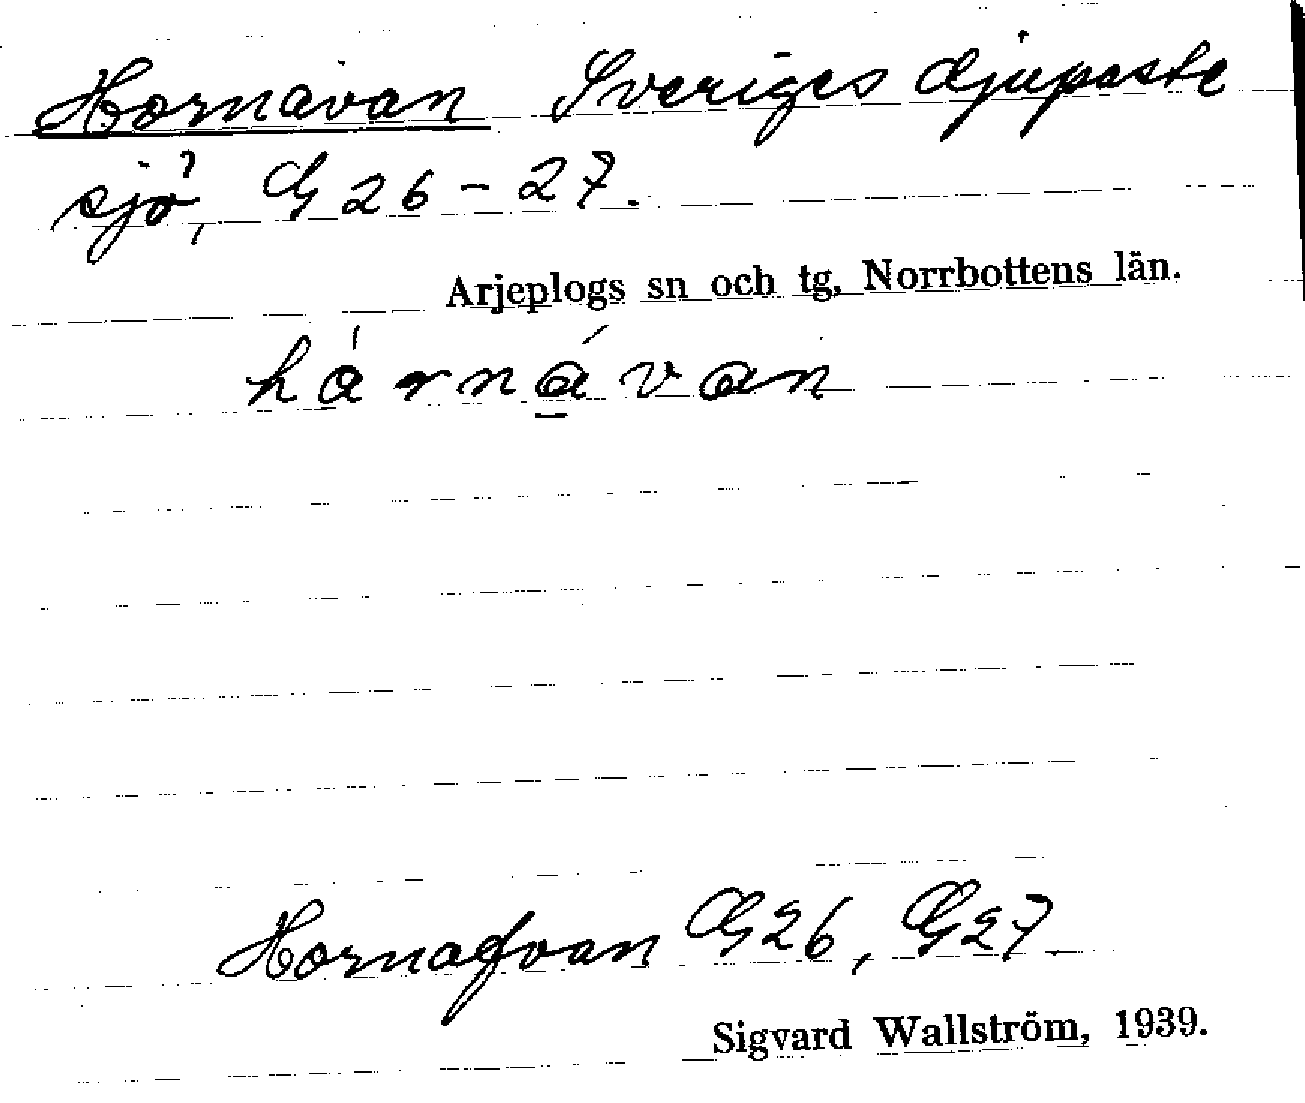 Hornavan Sveriges djupaste
sjö, G 26 - 27.
Arjeplogs sn och tg, Norrbottens län.
hårnávan
Hornafvan G26, G27
Sigvard Wallström, 1939.